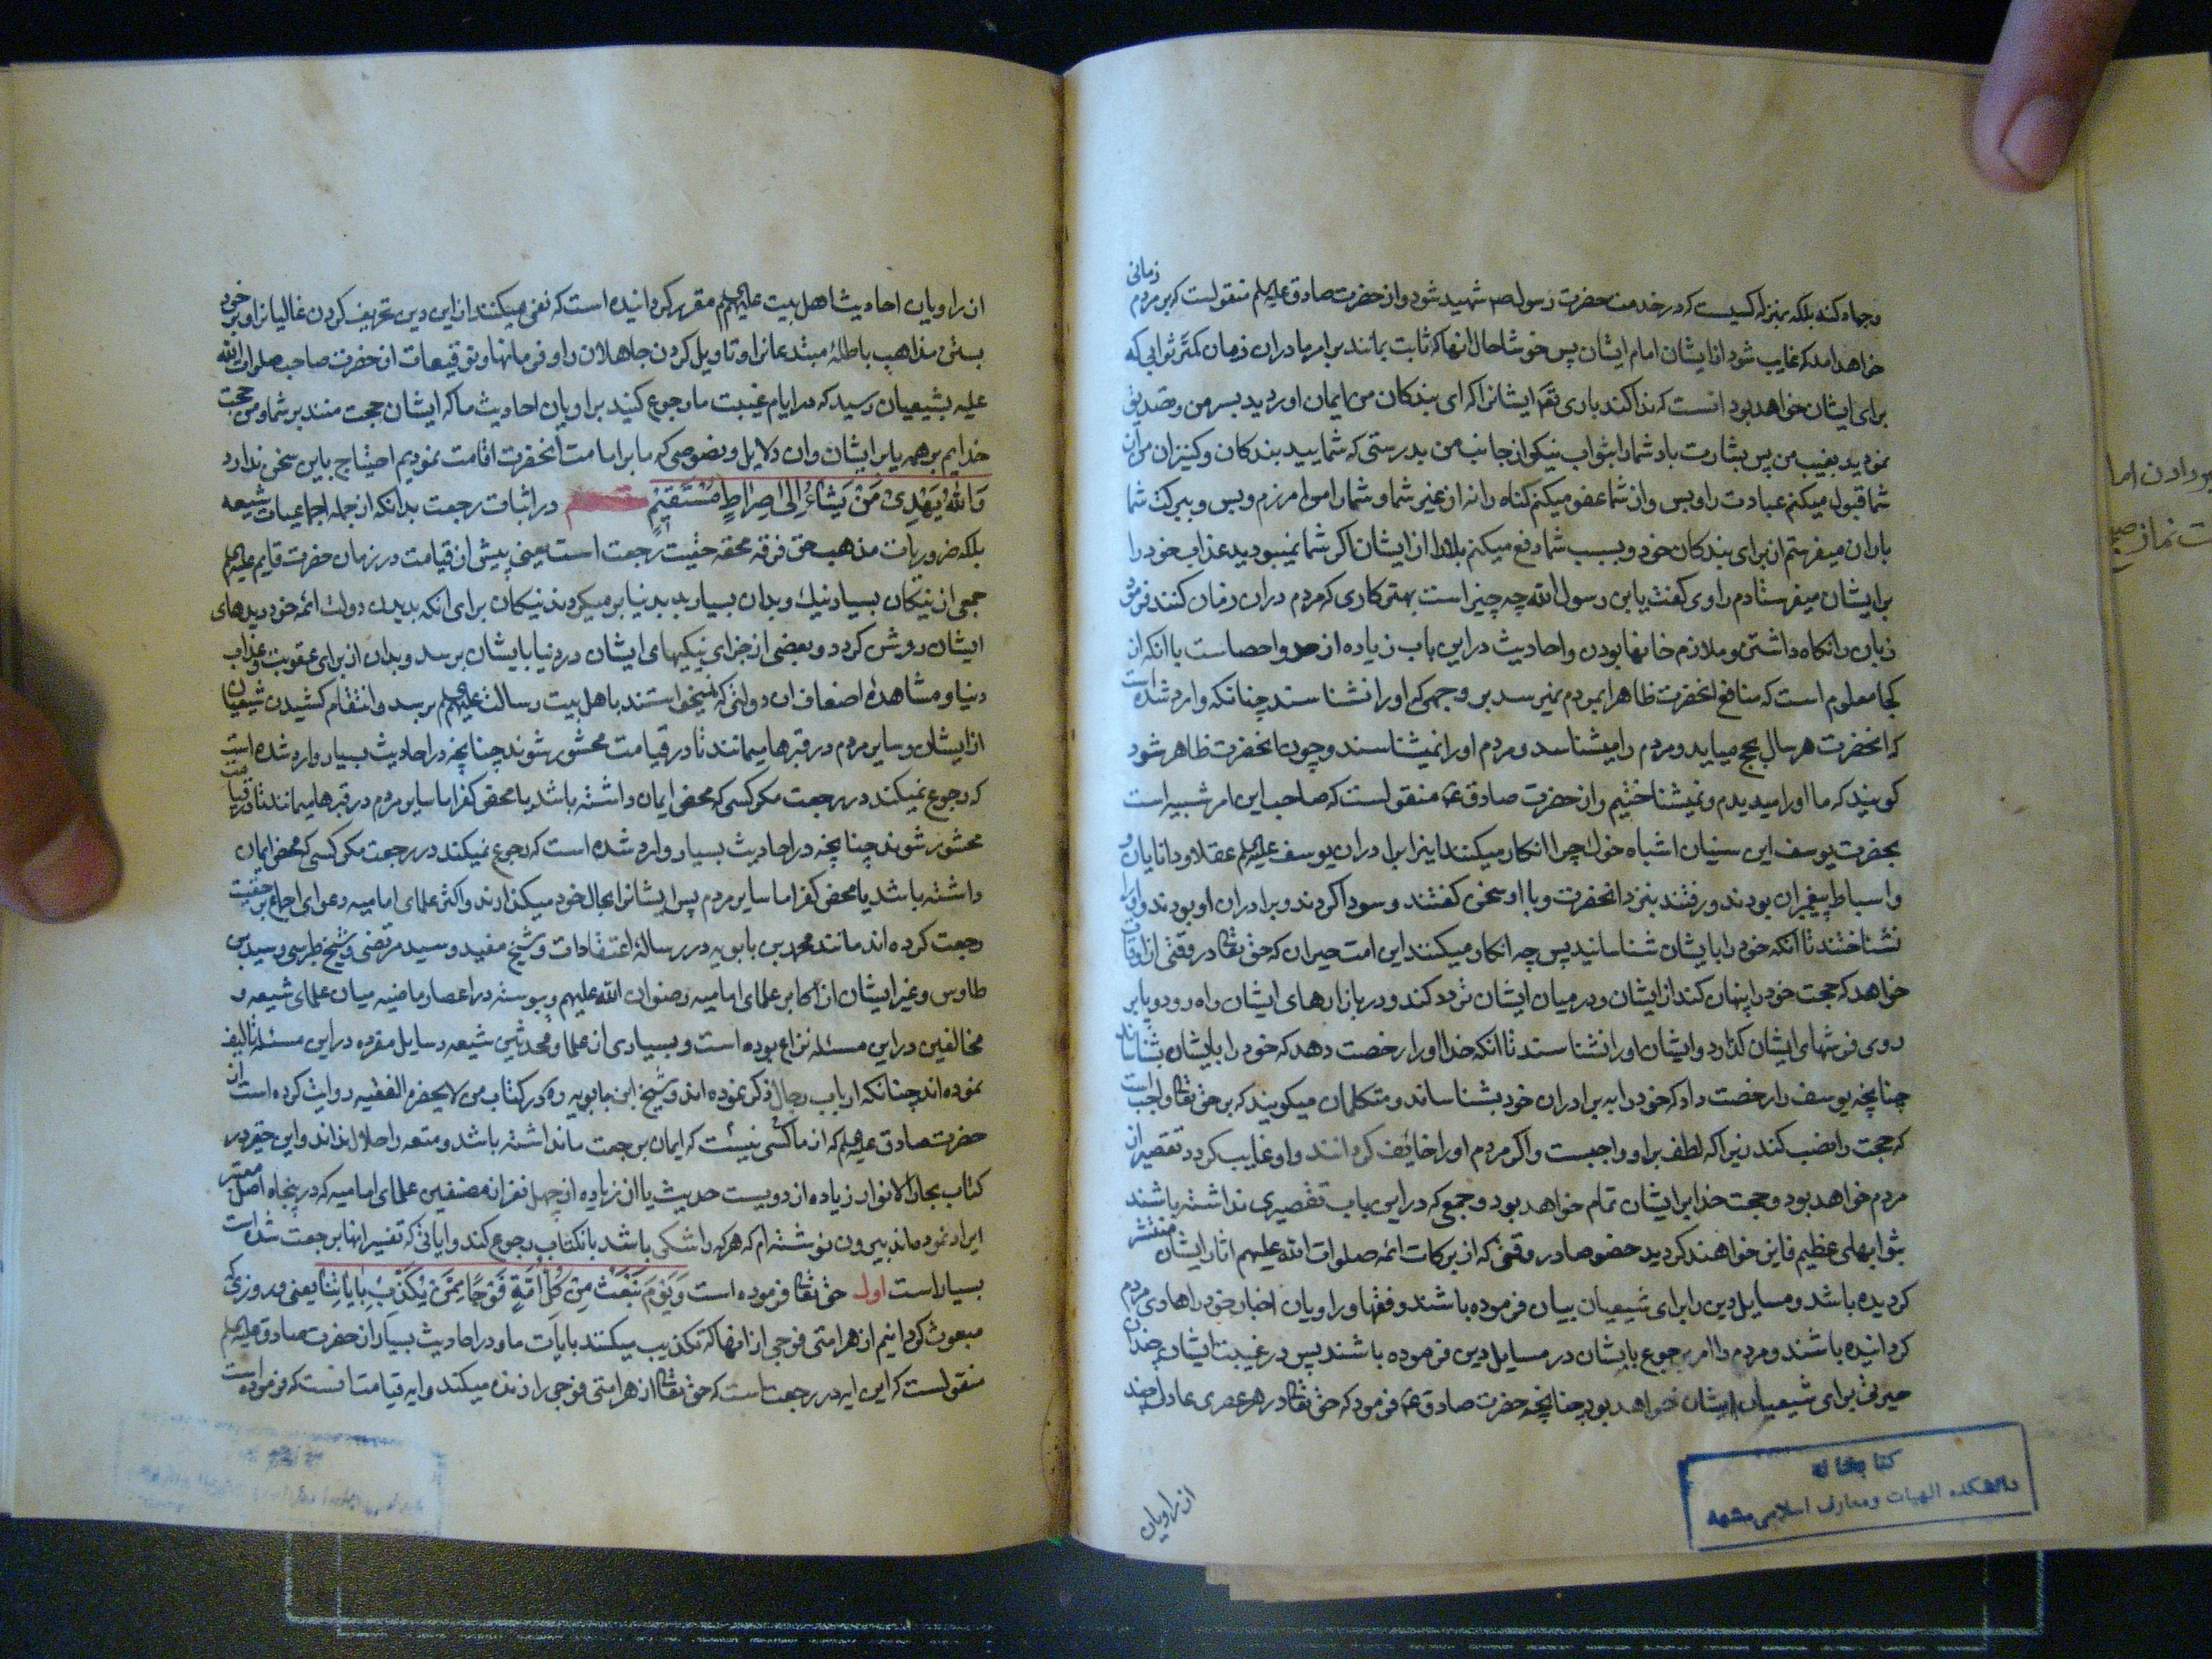 وجهاد کند بلکه بمنزله کسیست که در خدمت حضرت رسول ص شهید شود و از حضرت صادق علیه السلم منقولست که بر مردم زمانی
خواهد امد که غایب شود از ایشان امام ایشان پس خوشا حال انها که ثابت بمانند بر امر ما در ان زمان کمتر ثوابی که
برای ایشان خواهد بود انست که ندا کند باری تعم ایشانرا که ای بندکان من ایمان اوردید بسر من و تصدیق
نمودید بغیب من پس بشارت باد شمارا بثواب نیکو از جانب من بدرستی که شمایید بندکان و کنیزان من از
شما قبول میکنم عبادت را و بس و از شما عفو میکنم کناه را نه از غیر شما و شمارا می امرزم و بس و ببرکت شما
باران میفرستم از برای بندکان خود و بسبب شما دفع میکنم بلا را از ایشان اکر شما نمیبودید عذاب خود را
بر ایشان میفرستادم راوی کفت یا بن رسول الله چه چیز است بهتر کاری که مردم در ان زمان کنند فرمود
زبان را نکاه داشتن و ملازم خانها بودن و احادیث در این باب زیاده از حد و احصاست با انکه از
کجا معلوم است که منافع انحضرت ظاهرا بمردم نمیرسد بر وجهی که او را نشناسند چنانکه وارد شده است
که انحضرت هر سال بحج میاید و مردم را میشناسد و مردم او را نمیشناسند و چون انحضرت ظاهر شود
کویند که ما او را میدیدیم و نمیشناختیم و از حضرت صادق ع منقولست که صاحب این امر شبیه است
بحضرت یوسف این سنیان اشباه خوک چرا انکار میکنند اینرا برادران یوسف علیه السلم عقلا و دانایان و
و اسباط پیغمبران بودند و رفتند بنزد انحضرت و با او سخن کفتند و سودا کردند و برادران او بودند و او را
نشناختند تا انکه خود را بایشان شناسانید پس چه انکار میکنند این امت حیران که حق تعالی در وقتی از اوقات
خواهد که حجت خود را پنهان کند از ایشان و در میان ایشان تردد کند و در بازارهای ایشان راه رود و پا بر
روی فرشهای ایشان کذارد و ایشان او را نشناسند تا انکه خدا او را رخصت دهد که خود را بایشان بشناساند
چنانچه یوسف را رخصت داد که خود را به برادران خود بشناساند و متکلمان میکویند که بر حق تعالی واجب است
که حجت را نصب کند زیرا که لطف بر او واجبست و اکر مردم او را خائف کردانند و او غایب کردد تقصیر از
مردم خواهد بود و حجت خدا بر ایشان تمام خواهد بود و جمعی که در این باب تقصیری نداشته باشند
بثوابهای عظیم فایز خواهند کردید خصوصا در وقتی که از برکات ائمه صلوات الله علیهم اثار ایشان منتشر
کردیده باشد و مسایل دین را برای شیعیان بیان فرموده باشند و فقها و راویان اخبار خود را هادی مردم
کردانیده باشند و مردم را امر برجوع بایشان در مسایل دین فرموده باشند پس در غیبت ایشان چندان
حیرتی برای شیعیان ایشان نخواهد بود چنانچه حضرت صادق ع فرمود که حق تعالی در هر عصری عادلی چند
از راویان
کتابخانه
دانشکده الهیات و معارف اسلامی مشهد
از راویان احادیث اهل بیت علیهم السلم مقرر کردانیده است که نفی میکنند از این دین تحریف کردن غالیانرا و بر خود
بستن مذاهب باطلهٔ مبتدعانرا و تاویل کردن جاهلان را و فرمانها و توقیعات از حضرت صاحب صلوات الله
علیه بشیعیان رسید که در ایام غیبت ما رجوع کنید براویان احادیث ما که ایشان حجت منند بر شما و من حجت
خدایم بر همه یا بر ایشان و ان دلایل و نصوصی که ما بر امامت انحضرت اقامت نمودیم احتیاج باین سخن ندارد
وَاللهُ یَهْدِی مَنْ یَشَاءُ إِلیٰ صِرَاطٍ مُسْتَقِیمٍ در اثبات رجعت بدانکه از جمله اجماعیات شیعه
بلکه ضروریات مذهب حق فرقهٔ محقه حقیت رجعت است یعنی پیش از قیامت در زمان حضرت قایم علیه السلم
جمعی از نیکان بسیار نیک و بدان بسیار بد بدنیا بر میکردند نیکان برای انکه بدیدن دولت ائمه خود دیدهای
ایشان روشن کردد و بعضی از جزای نیکیهای ایشان در دنیا بایشان برسد و بدان از برای عقوبت و عذاب
دنیا و مشاهدهٔ اضعاف ان دولتی که نمیخواستند باهل بیت رسالت علیهم السلم برسد و انتقام کشیدن شیعیان
از ایشان و سایر مردم در قبرها میمانند تا در قیامت محشور شوند چنانچه در احادیث بسیار وارد شده است
که رجوع نمیکند در رجعت مکر کسی که محض ایمان داشته باشد یا محض کفر اما سایر مردم در قبرها میمانند تا در قیامت
محشور شوند چنانچه در احادیث بسیار وارد شده است که رجوع نمیکند در رجعت مکر کسی که محض ایمان
داشته باشد یا محض کفر اما سایر مردم پس ایشانرا بحال خود میکذارند و اکثر علمای امامیه دعوای اجماع بر حقیت
رجعت کرده اند مانند محمد بن بابویه در رسالهٔ اعتقادات و شیخ مفید و سید مرتضی و شیخ طبرسی و سید بن
طاوس و غیر ایشان از اکابر علمای امامیه رضوان الله علیهم و پیوسته در اعصار ماضیه میان علمای شیعه و
مخالفین در این مسئله نزاع بوده است و بسیاری از علما و محدثین شیعه رسایل مفرده در این مسئله تالیف
نموده اند چنانکه ارباب رجال ذکر نموده اند و شیخ ابن بابویه ره در کتاب من لا یحضره الفقیه روایت کرده است از
حضرت صادق علیه السلم که از ما کسی نیست که ایمان برجعت ما نداشته باشد و متعه را حلال نداند و این حقیر در
کتاب بحار الانوار زیاده از دویست حدیث یا از زیاده از چهل نفر از مصنفین علمای امامیه که در پنجاه اصل معتبر
ایراد نموده اند بیرون نوشته ام که هر که را شکی باشد بانکتاب رجوع کند و ایاتی که تفسیر انها برجعت شده است
بسیار است اول حق تعالی فرموده است وَیَوْمَ نَبْعَثُ مِنْ کُلِّ أُمَّةٍ فَوْجًا مِمَّنْ یُکَذِّبُ بِآیَاتِنَا یعنی و روزی که
مبعوث کردانیم از هر امتی فوجی از انها که تکذیب میکنند بایات ما و در احادیث بسیار از حضرت صادق علیه السلم
منقولست که این ایه در رجعت است که حق تعالی از هر امتی فوجی را زنده میکند و ایه قیامت انست که فرموده است